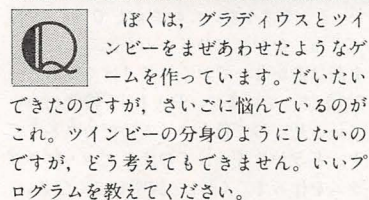 Q
ぼくは，グラディウスとツイ
ンビーをまぜあわせたようなゲ
ームを作っています。だいたい
できたのですが，さいごに悩んでいるのが
これ。ツインビーの分身のようにしたいの
ですが，どう考えてもできません。いいプ
ログラムを教えてください。